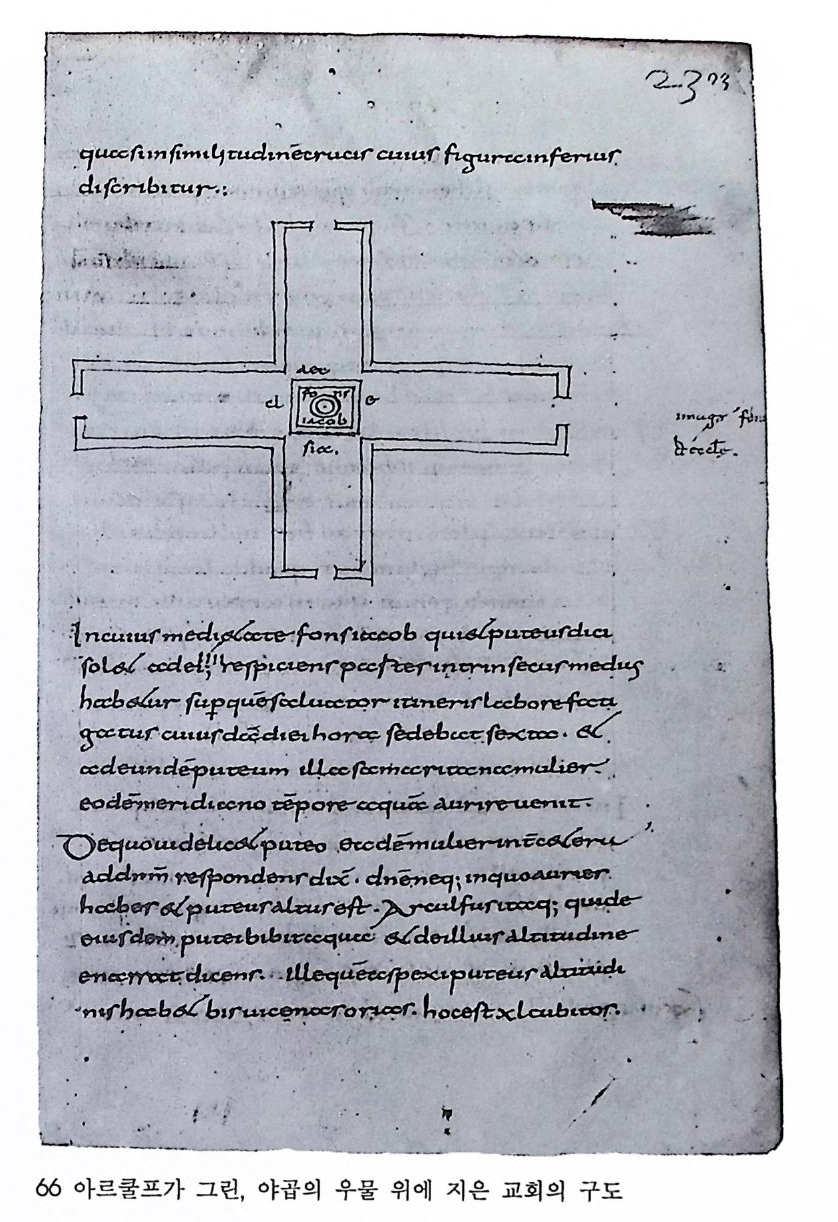 23 73
quasi in similitudinē crucis cuius figura inferius
discribitur.:
aec
el
e
fo ns
iacob
sia.
imago fon
& eccle.
In cuius medi&ate fons iacob qui & puteus dici
sol& ad eiꝰ respiciens partes intrinsecus medius
hab&ur sup quē saluator itineris labore fati
gatus cuiusdā diei hora sedebat sexta. &
ad eundē puteum illa samaritana mulier
eodē meridiano tēpore aquā aurire uenit.
De quo uidelic& puteo eadē mulier int̄ c&era
ad dn̄m respondens dix̄. dn̄e neq; in quo aurier
habes & puteus altus est. Arculfus itaq; qui de
eiusdem putei bibit aqua & de illius altitudine
enarrat dicens. ille quē aspexi puteus altitudi
nis hab& bis uicenas orias. hoc est xl cubitos.
66 아르쿨프가 그린, 야곱의 우물 위에 지은 교회의 구도